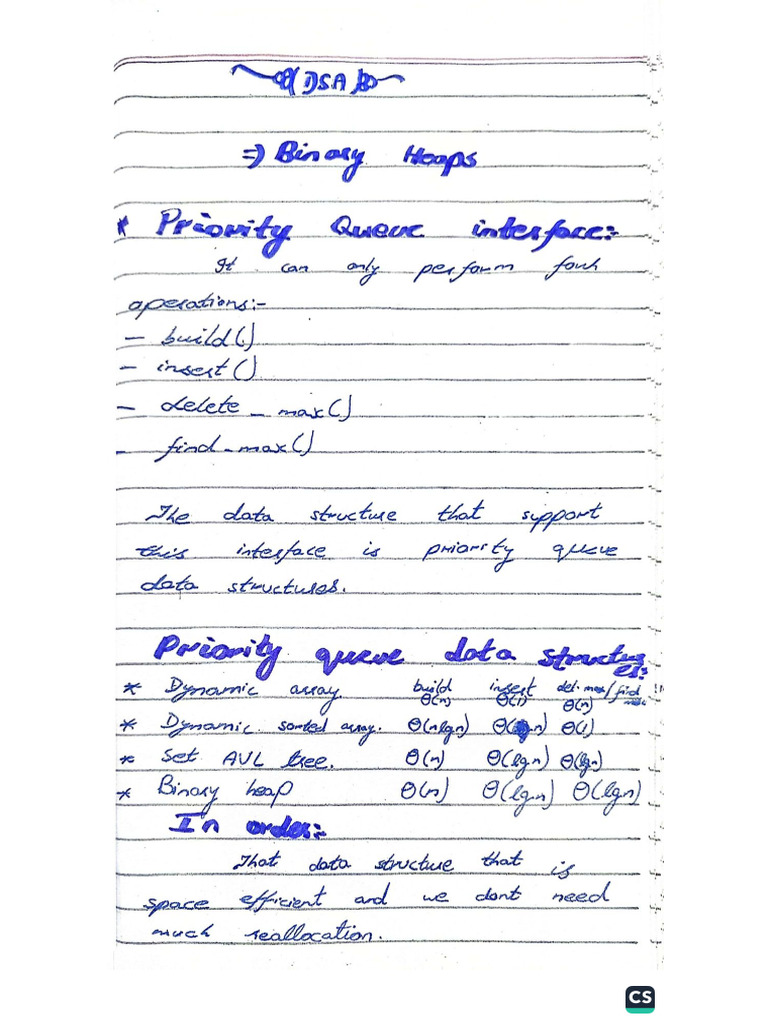 DSA
=> Binary Heaps
* Priority Queue interface:-
It can only perform four
operations:-
- build()
- insert()
- delete_max()
- find_max()
The data structure that support
this interface is priority queue
data structures.
Priority queue data structures:
* Dynamic array build Θ(n) insert Θ(1) del.max/find max Θ(n)
* Dynamic sorted array. Θ(nlgn) Θ(n) Θ(1)
* Set AVL tree. Θ(n) Θ(lgn) Θ(lgn)
* Binary heap Θ(n) Θ(lgn) Θ(lgn)
In order:-
That data structure that is
space efficient and we dont need
much reallocation.
CS